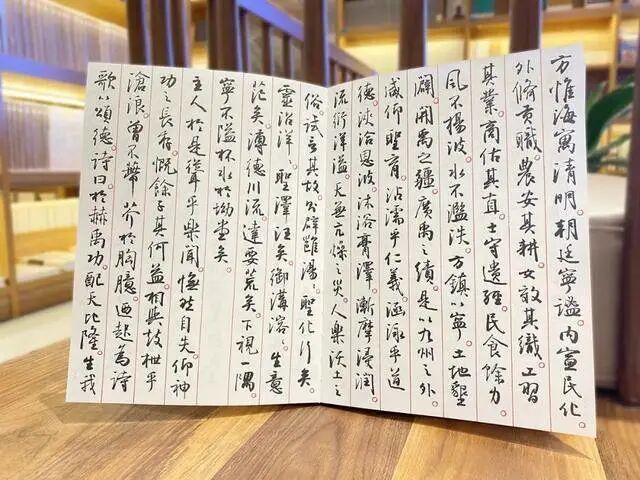 方惟海寓清明。朝廷寧謐。内宣民化。
外脩貢職。農安其耕。女效其織。工習
其業。商估其直。士守遺經。民食餘力。
風不揚波。水不濫泆。方鎮以寧。土地墾
闢。開禹之疆。廣禹之績。是以九州之外。
咸仰聖育。沾濡乎仁義。涵泳乎道
德。浹洽恩波。沐浴膏澤。漸摩浸潤。
流衍洋溢。天無亢燥之災。人樂沃土之
俗。試言其故。辟雝湯湯。聖化行矣。
靈沼洋洋。聖澤汪矣。御溝溶溶。生意
茫矣。溥德川流。達要荒矣。下視一隅。
寧不隘杯水於坳堂矣。
主人於是聳乎樂聞。憮然自失。仰神
功之長存。慨餘子其何益。相與鼓枻乎
滄浪。曾不蔕芥於胸臆。迺起為詩
歌以頌德。詩曰。於赫禹功。配天比隆。生我